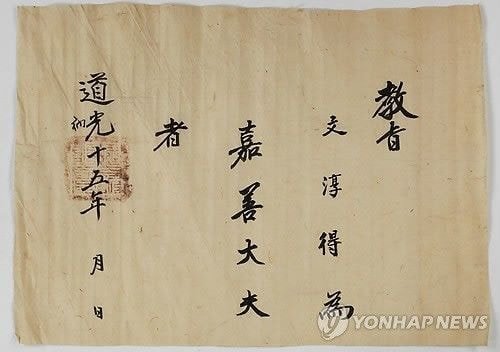 教旨
文淳得為
嘉善大夫
者
道光十五年 月 日
YONHAPNEWS